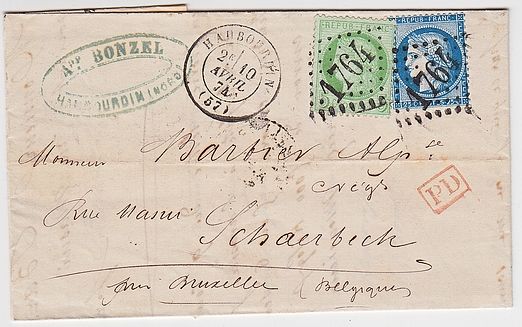 Aᵈᵉ BONZEL
HAUBOURDIN (NORD)
HAUBOURDIN
2E/ 10
AVRIL
74
(57)
REPUB. FRANC.
1764
REPUB. FRANC.
1764
Monsieur Barbier Alpse
Négt
PD
Rue
Schaerbeck
près Bruxelles (Belgique)